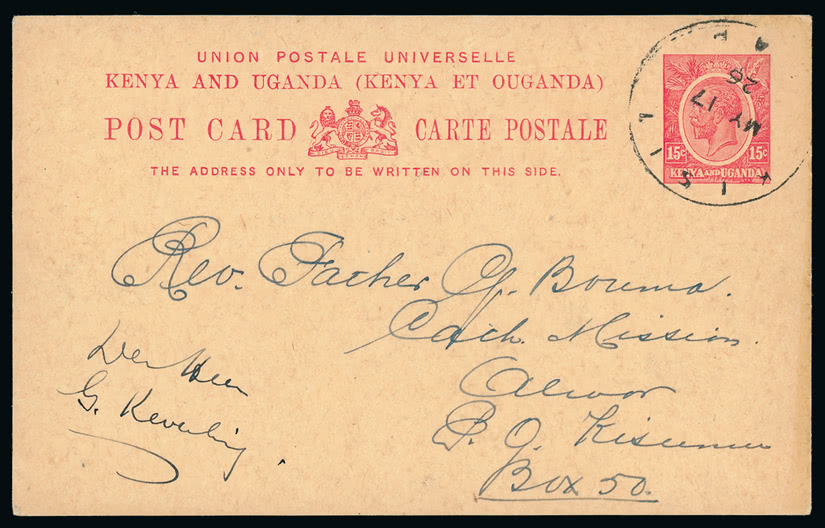 UNION POSTALE UNIVERSELLE
KENYA AND UGANDA (KENYA ET OUGANDA)
POST CARD CARTE POSTALE
THE ADDRESS ONLY TO BE WRITTEN ON THIS SIDE.
15c 15c
KENYA AND UGANDA
KISII
MY 17
26
Rev. Father Of. Bouma.
Cath. Mission.
Aluor
P. O. Kisumu
Box 50.
Den Heer
G. Keverling.